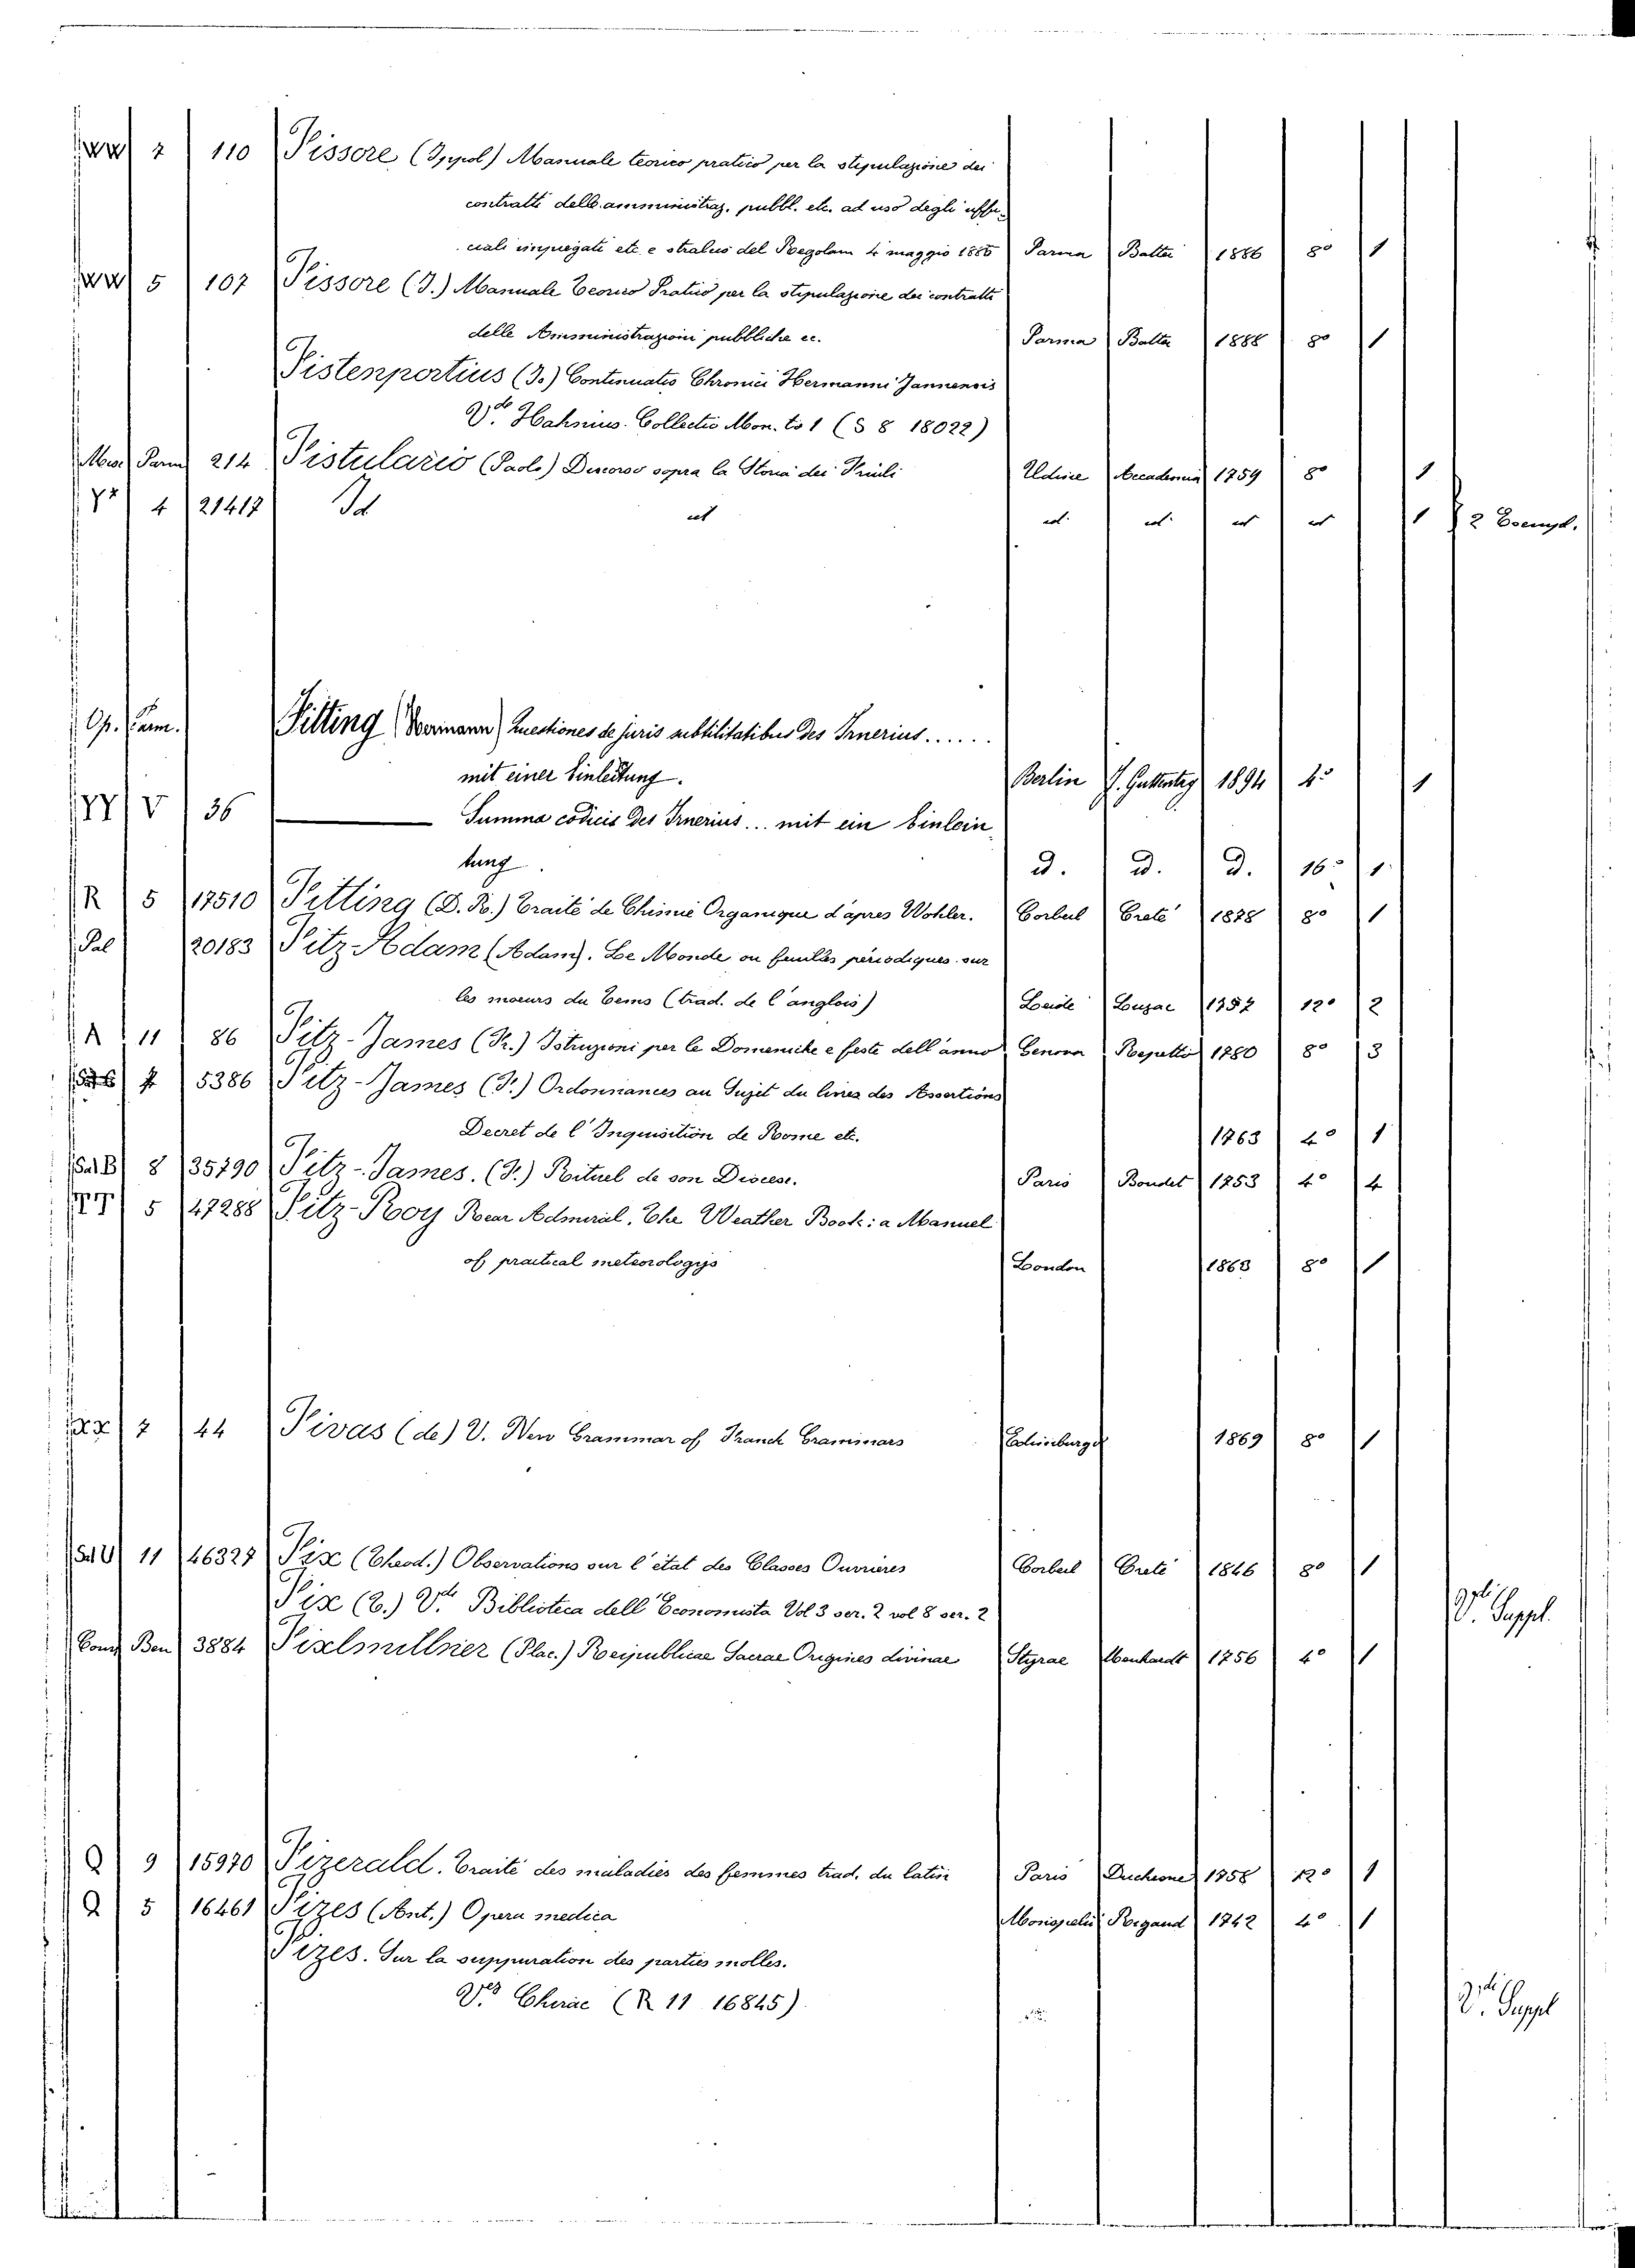 WW 2 110 Fissore (Ippol) Manuale teorico pratico per la stipulazione dei
contratti delle amministraz. pubbl. etc. ad uso degli uffi-
ciali impiegati etc e stralcio del Regolam 4 maggio 1885 Parma Battei 1886 8º 1
WW 5 107 Fissore (I.) Manuale Teorico Pratico per la stipulazione dei contratti
delle Amministrazioni pubbliche ec. Parma Battei 1888 8º 1
Fistenportius (Jo) Continuatio Chronici Hermanni Jannensis
Vdo Hahnius Collectio Mon. to 1 (S 8 18022)
Misc. Parm 214 Fistulario (Paolo) Discorso sopra la Storia del Friuli Udine Accademia 1759 8º 1
4 21417 Id ut ut ut ut ut 1 2 Esempl.
Op. Parm. Fitting (Hermann) Questiones de juris subtilitatibus des Irnerius......
mit einer Einleitung. Berlin J. Guttentag 1894 4º 1
YY V 36 ——— Summa codicis des Irnerius... mit ein Einlein-
tung D. D. D. 16º 1
R 5 17510 Fitting (D. R.) Traité de Chimie Organique d'apres Wohler. Corbeil Creté 1878 8º 1
Pal 20183 Fitz-Adam (Adam). Le Monde ou feuilles périodiques sur
les moeurs du tems (trad. de l'anglois) Leide Luzac 1757 12º 2
A 11 86 Fitz-James (Fr.) Istruzioni per le Domeniche e feste dell'anno Genova Repetto 1780 8º 3
5386 Fitz-James (Fr.) Ordonnances au Sujet du livres des Assertions
Decret de l'Inquisition de Rome etc. 1763 4º 1
Sal B 8 35790 Fitz-James. (Fr.) Rituel de son Diocese. Paris Boudet 1753 4º 4
5 47288 Fitz-Roy Rear Admiral. The Weather Book: a Manuel
of practical meteorologys London 1863 8º 1
XX 7 44 Fivas (de) V. New Grammar of Franch Grammars Edimburgo 1869 8º 1
Sal U 11 46327 Fix (Theod.) Observations sur l'état des Classes Ouvrieres Corbeil Creté 1846 8º 1
Fix (T.) Vdi Biblioteca dell'Economista Vol 3 ser. 2 vol 8 ser. 2 Vdi Suppl.
Conv Ben 3884 Fixlmillner (Plac.) Reipublicae Sacrae Origines divinae Styrae Menhardt 1756 4º 1
Q 9 15970 Fizerald. Traité des maladies des femmes trad. du latin Paris Duchesne 1758 12º 1
Q 5 16461 Fizes (Ant.) Opera medica Monspelii Rigaud 1742 4º 1
Fizes. Sur la suppuration des parties molles.
Ves Chirac (R 11 16845) Vdi Suppl